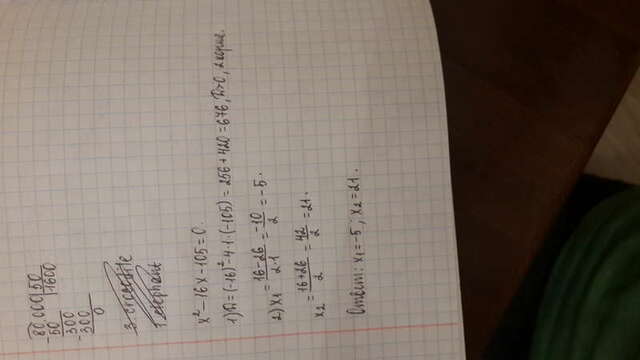 80 000 | 50
- 50 | 1600
300
- 300
0
3. crocodile
1. elephant
x² - 16x - 105 = 0.
1) D = (-16)² - 4·1·(-105) = 256 + 420 = 676, D>0, 2 корня.
2) x₁ = (16-26)/(2·1) = (-10)/2 = -5.
x₂ = (16+26)/2 = 42/2 = 21.
Ответ: x₁ = -5; x₂ = 21.